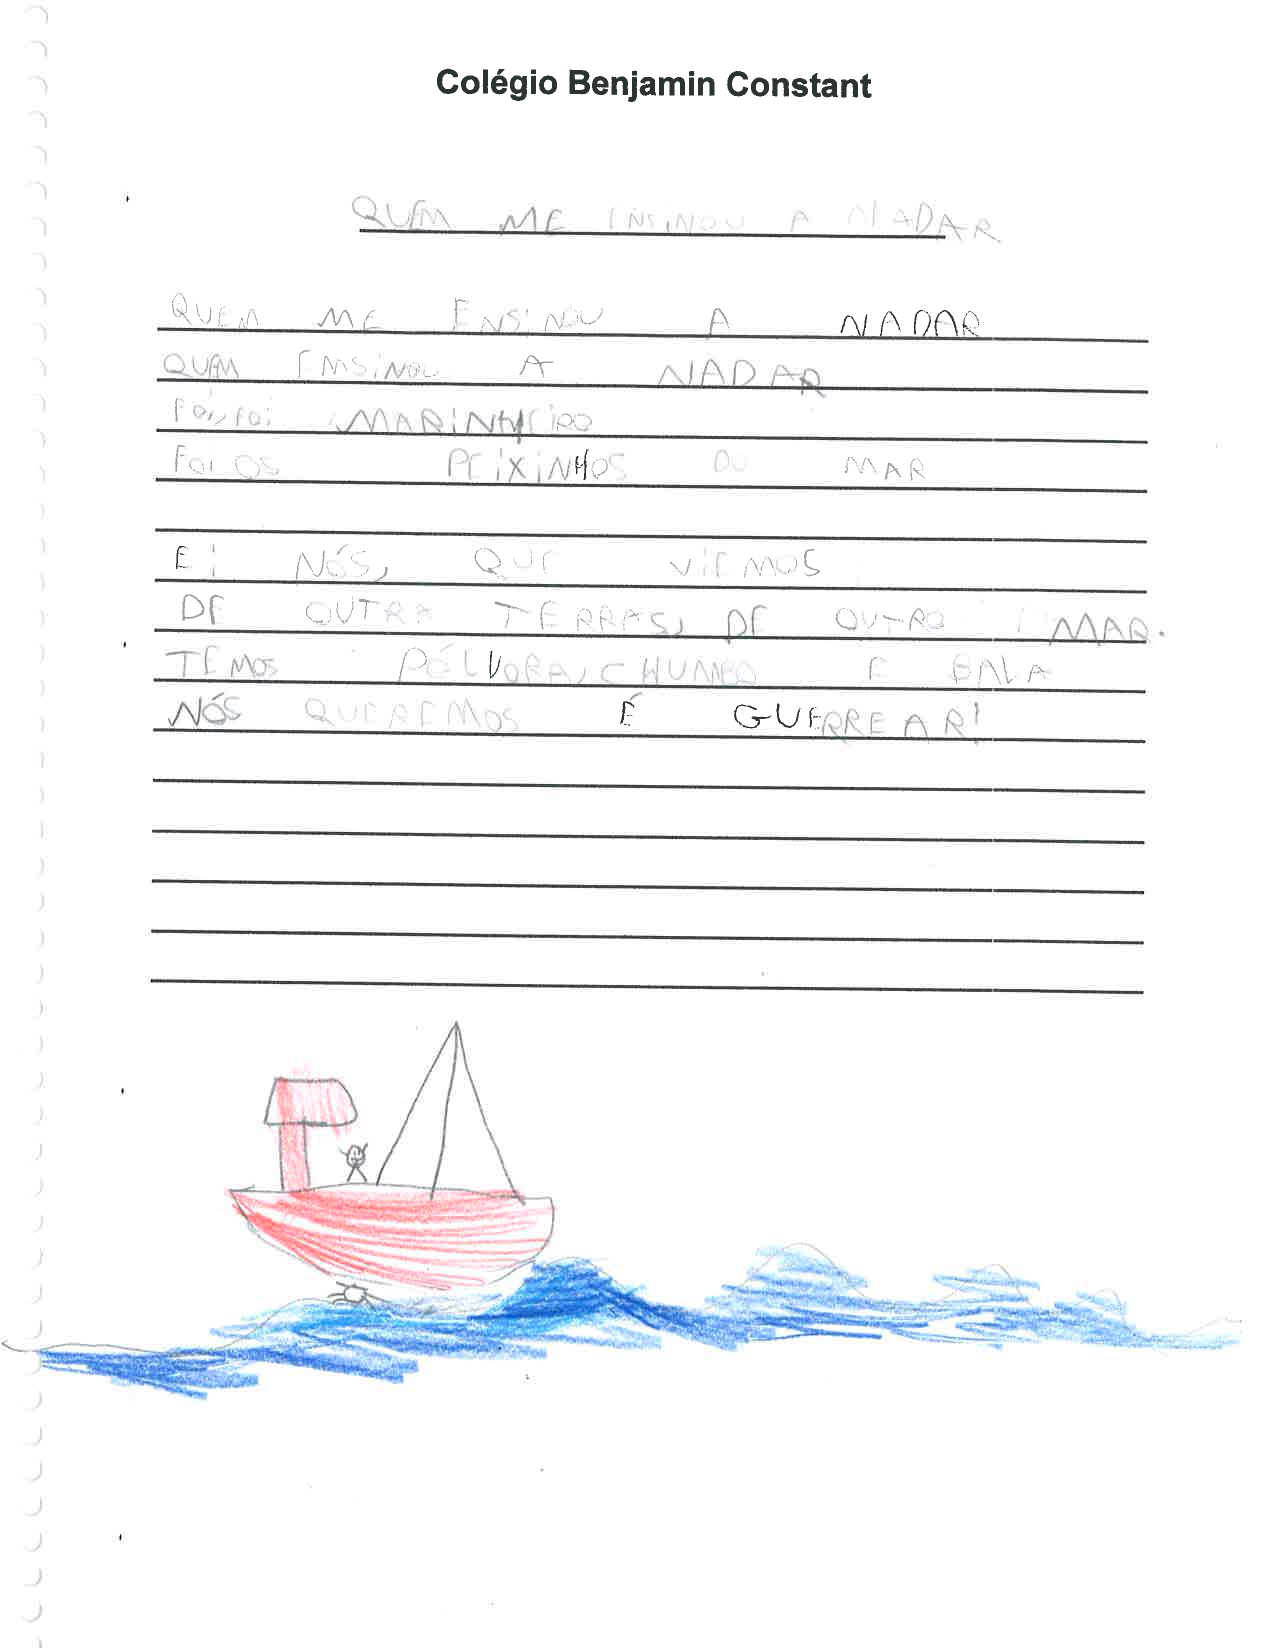 Colégio Benjamin Constant
QUEM ME ENSINOU A NADAR
QUEM ME ENSINOU A NADAR
QUEM ENSINOU A NADAR
FOI, FOI MARINHEIRO
FOI OS PEIXINHOS DO MAR
EI NÓS, QUE VIEMOS
DE OUTRA TERRAS, DE OUTRO MAR.
TEMOS PÓLVORA, CHUMBO E BALA
NÓS QUEREMOS É GUERREAR!